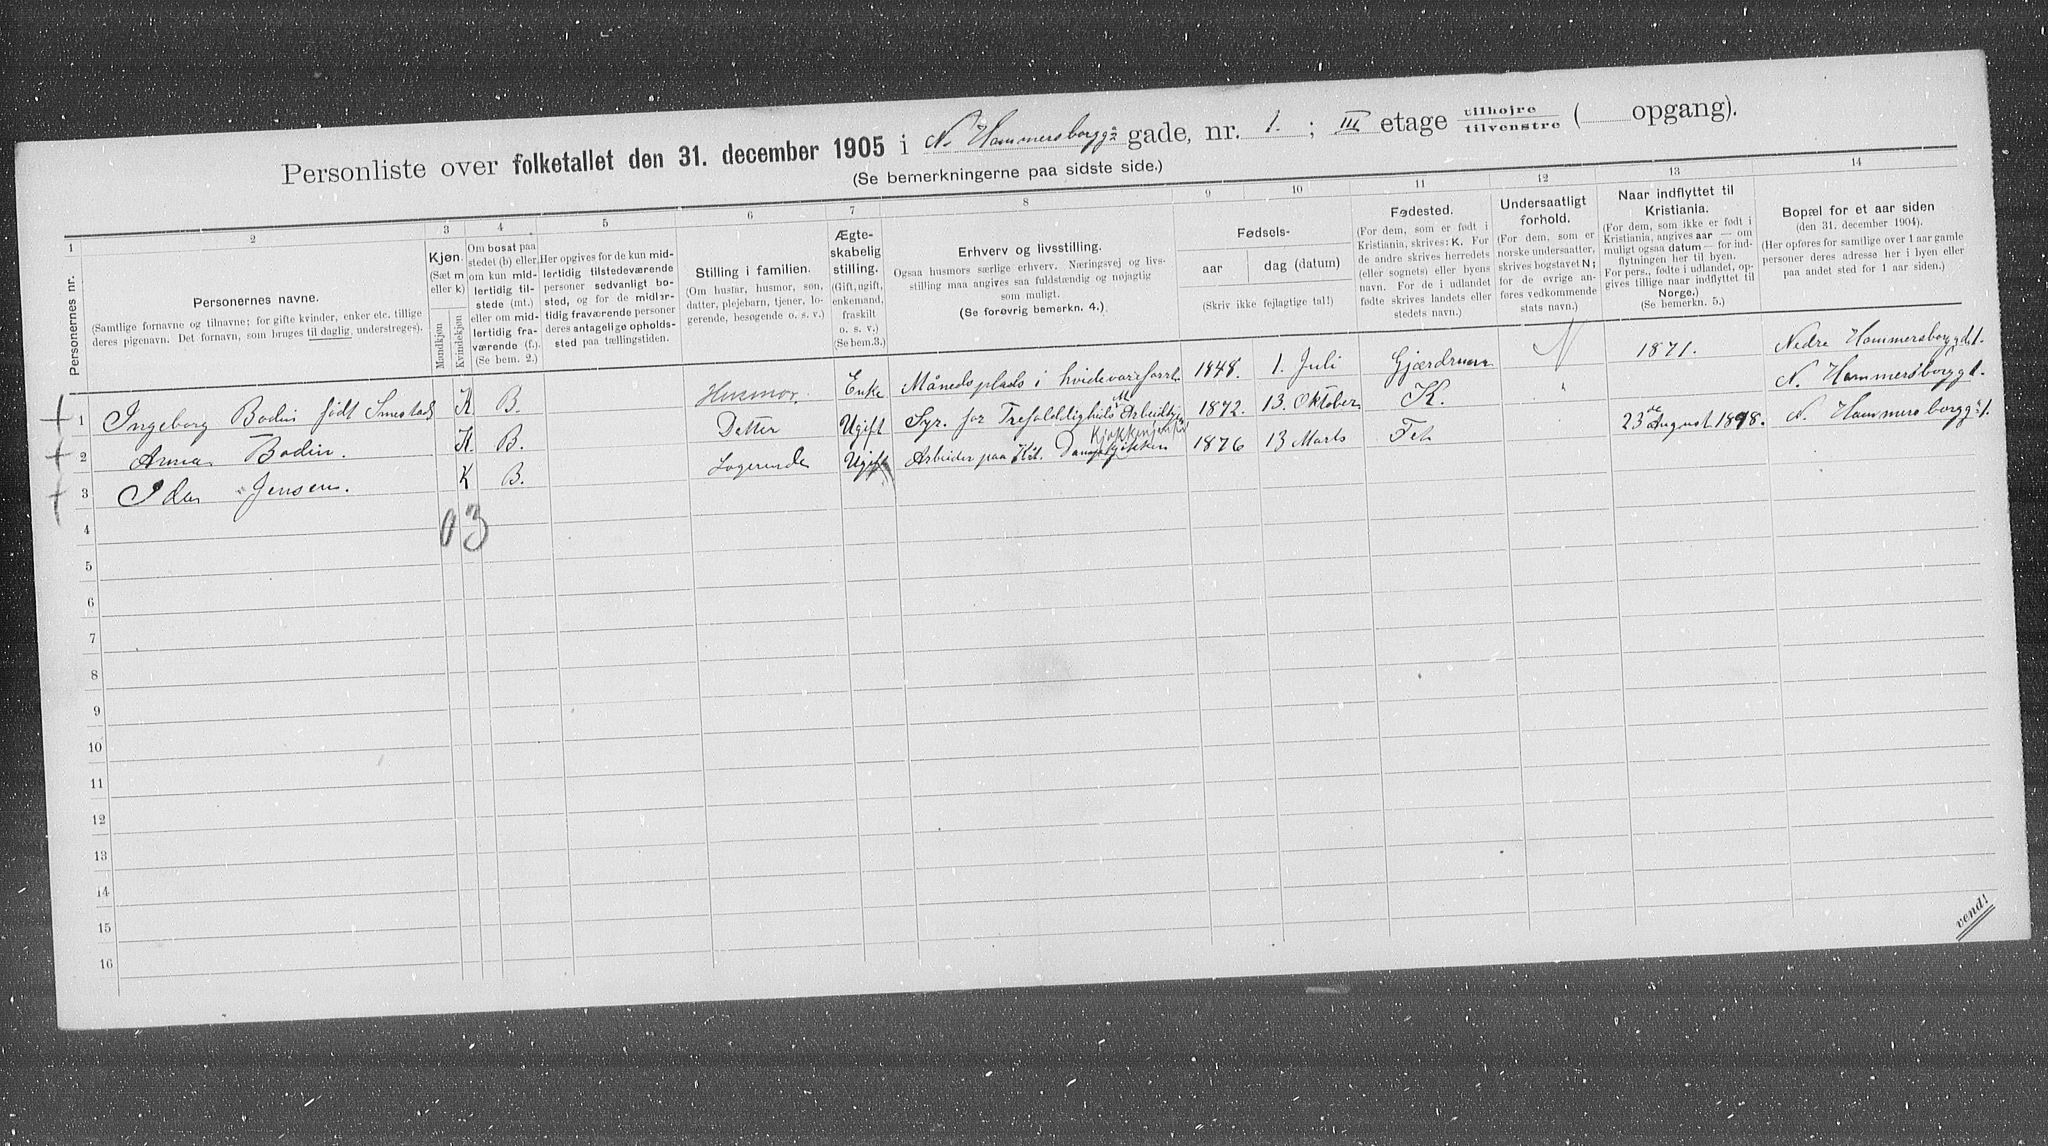 Personliste over folketallet den 31. december 1905 i N. Hammersborgg. gade, nr. 1. ; III etage tilhøjre / tilvenstre ( opgang).
(Se bemerkningerne paa sidste side.)
1 2 3 4 5 6 7 8 9 10 11 12 13 14
Personernes nr.
Personernes navne.
(Samtlige fornavne og tilnavne; for gifte kvinder, enker etc. tillige
deres pigenavn. Det fornavn, som bruges til daglig, understreges).
Kjøn.
(Sæt m
eller k)
Mandkjøn
Kvindekjøn
Om bosat paa
stedet (b) eller
om kun mid-
lertidig til-
stede (mt.)
eller om mid-
lertidig fra-
værende (f.).
(Se bem. 2.)
Her opgives for de kun mid-
lertidig tilstedeværende
personer sedvanligt bo-
sted, og for de midler-
tidig fraværende personer
deres antagelige opholds-
sted paa tællingstiden.
Stilling i familien.
(Om husfar, husmor, søn,
datter, plejebarn, tjener, lo-
gerende, besøgende o. s. v.)
Ægte-
skabelig
stilling.
(Gift, ugift,
enkemand,
fraskilt
o. s. v.)
(Se bem. 3.)
Erhverv og livsstilling.
Ogsaa husmors særlige erhverv. Næringsvej og livs-
stilling maa angives saa fuldstændig og nøjagtig
som muligt.
(Se forøvrig bemerkn. 4.)
Fødsels-
aar
dag (datum)
(Skriv ikke fejlagtige tal!)
Fødested.
(For dem, som er født i
Kristiania, skrives: K. For
de andre skrives herredets
(eller sognets) eller byens
navn. For de i udlandet
fødte skrives landets eller
stedets navn.)
Undersaatligt
forhold.
(For dem, som er
norske undersaatter,
skrives bogstavet N;
for de øvrige an-
føres vedkommende
stats navn.)
Naar indflyttet til
Kristiania.
(For dem, som ikke er født i
Kristiania, angives aar — om
muligt ogsaa datum — for ind-
flytningen her til byen.
For pers., fødte i udlandet, op-
gives tillige naar indflyttet til
Norge.)
(Se bemerkn. 5.)
Bopæl for et aar siden
(den 31. december 1904).
(Her opføres for samtlige over 1 aar gamle
personer deres adresse her i byen eller
paa andet sted for 1 aar siden.)
1 Ingeborg Bodin født Smestad K B. Husmor. Enke Månedsplads i hvidevareforrt. 1848. 1. Juli Gjærdrum N 1871. Nedre Hammersborggd 1.
2 Anna Bodin. K B. Datter Ugift Syr. for Trefoldigheds M Arbeidsk 1872. 13. Oktober K. " N. Hammersborggt.
3 Ida Jensen. K B. Logerende Ugift Arbeider paa Kr. Dampkjøkken 1876 13 Marts Fet 23de August 1898. N. Hammersborgg. 1.
4 0 3
5
6
7
8
9
10
11
12
13
14
15
16
vend!